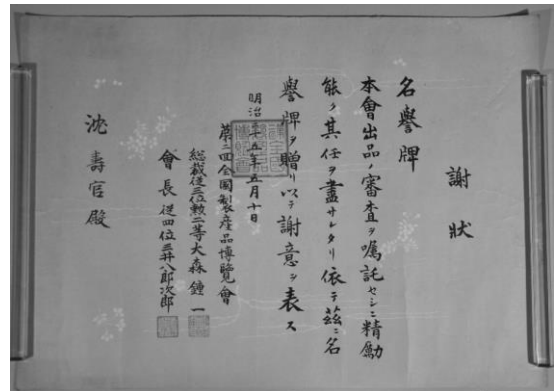 謝狀
名譽牌
本會出品ノ審査ヲ囑託セシニ精勵
能ク其任ヲ盡サレタリ依テ茲ニ名
譽牌ヲ贈リ以テ謝意ヲ表ス
明治三十五年五月十日
第二回全國製産品博覽會
總裁從三位勲二等大森鍾一
會長從四位三井八郎次郎
沈壽官殿